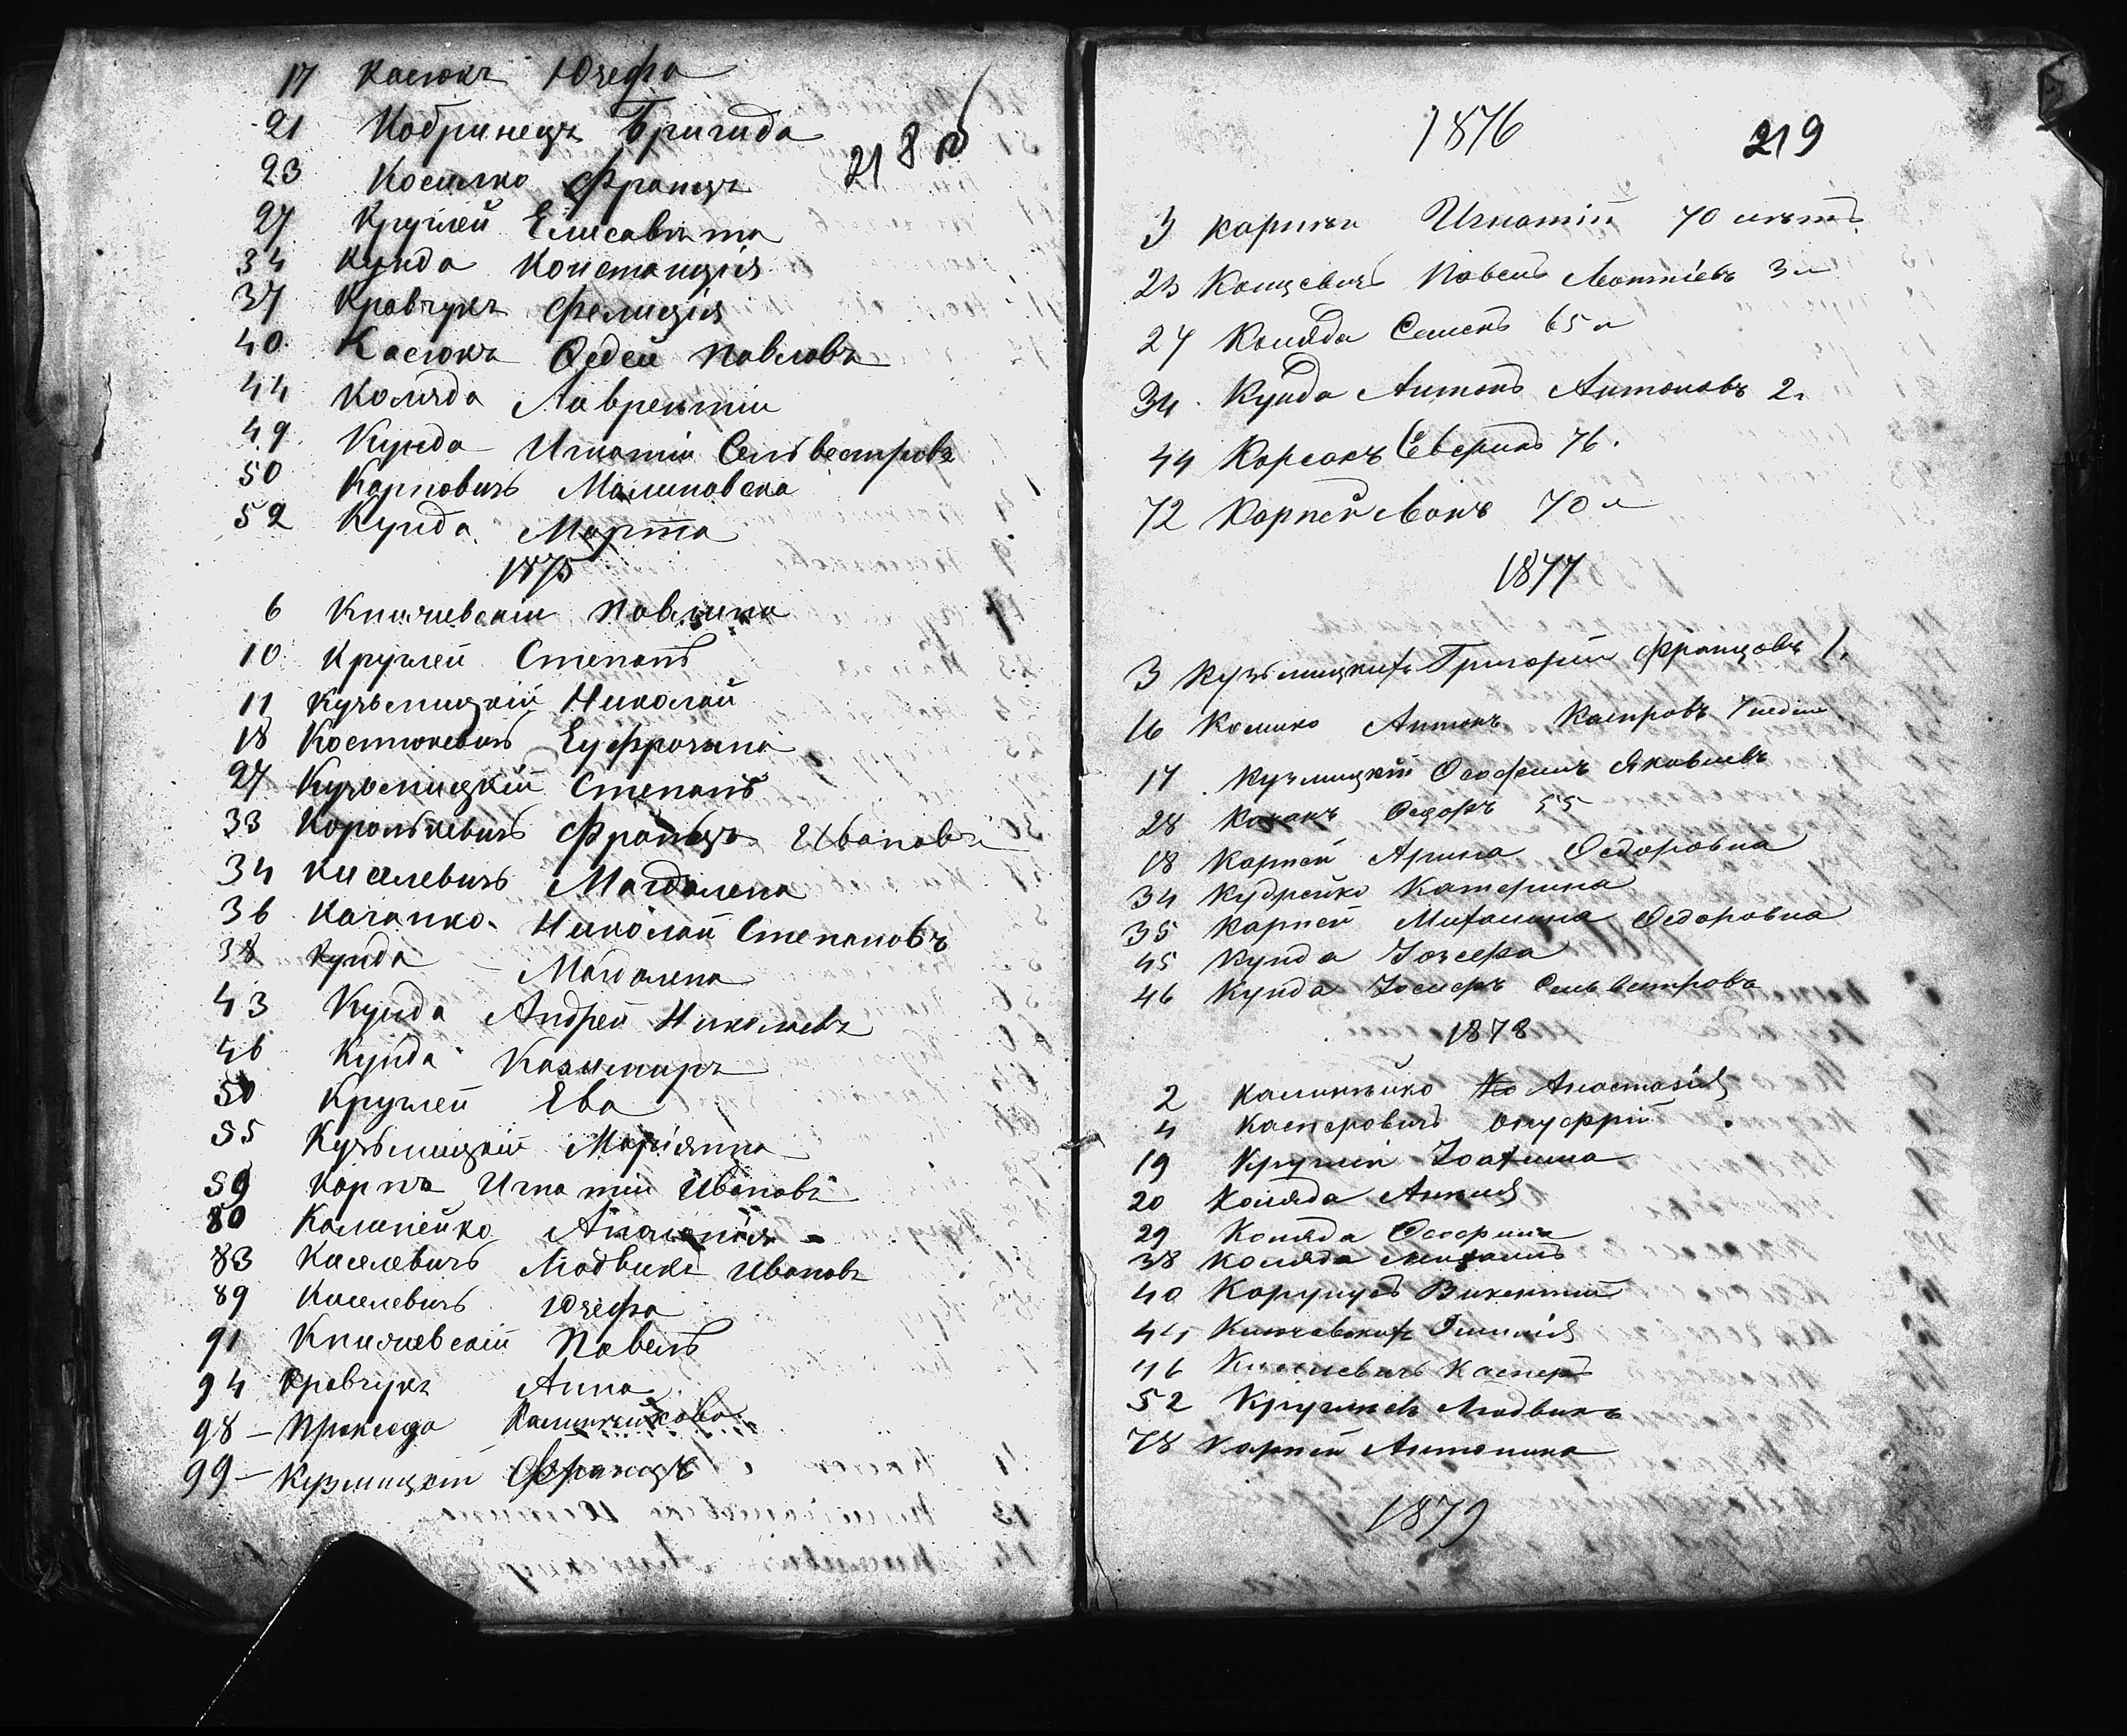 17 Касюкъ Юзефа
21 Кобринецъ Бригида
218 об
23 Косилко Францъ
27 Круглей Елисавета
34 Кунда Констанція
37 Кравчукъ Фелиція
40 Касюкъ Ѳадей Павловъ
44 Коляда Лаврентій
49 Кунда Игнатій Сельвестровъ
50 Карповичъ Малиновска
52 Кунда Марта
1875
6 Княжевскій Павлина
10 Круглей Степанъ
11 Кузьмицкій Николай
18 Костюкевичъ Еуфрозина
27 Кузьмицкій Степанъ
33 Королькевичъ Францъ Ивановъ
34 Киселевичъ Магдалена
36 Качанко Николай Степановъ
38 Кунда Магдалена
43 Кунда Андрей Николаевъ
46 Кунда Казимиръ
50 Круглей Ева
55 Кузьмицкій Маріянна
59 Карпа Игнатій Ивановъ
80 Калинейко Аполонія
83 Киселевичъ Людвикъ Ивановъ
89 Киселевичъ Юзефа
91 Княжевскій Павелъ
94 Кравчукъ Анна
98 – Пракседа Калинейкова
99 – Кузмицкій Францъ
1876
219
3 Игнатій 70 лѣтъ
23 Павелъ 3 л
27 Коляда Семенъ 65 л
34 Кунда Антонъ Антоновъ 2.
44 Корсакъ Еверинъ 76.
72 Карпей 70 л
1877
3 Кузьмицкихъ Григорій Францовъ 1.
16 Антонъ Каспровъ 7 недель
17 Кузмицкій Ѳеофилъ Яковлевъ
28 Ѳедоръ 55
18 Карпей Арина Ѳедоровна
34 Кудрейко Катерина
35 Карпей Михалина Ѳедоровна
45 Кунда Іозефа
46 Кунда Іосифъ Сельвестровъ
1878
2 Калинѣйко Анастазія
4 Касперовичъ Онуфрій
19 Іоахима
20 Коляда Анеля
29 Коляда
38 Коляда Михаилъ
40 Викентій
45 Эмилія
46 Киселевичъ Касперъ
52 Людвикъ
78 Карпей Антонина
1879